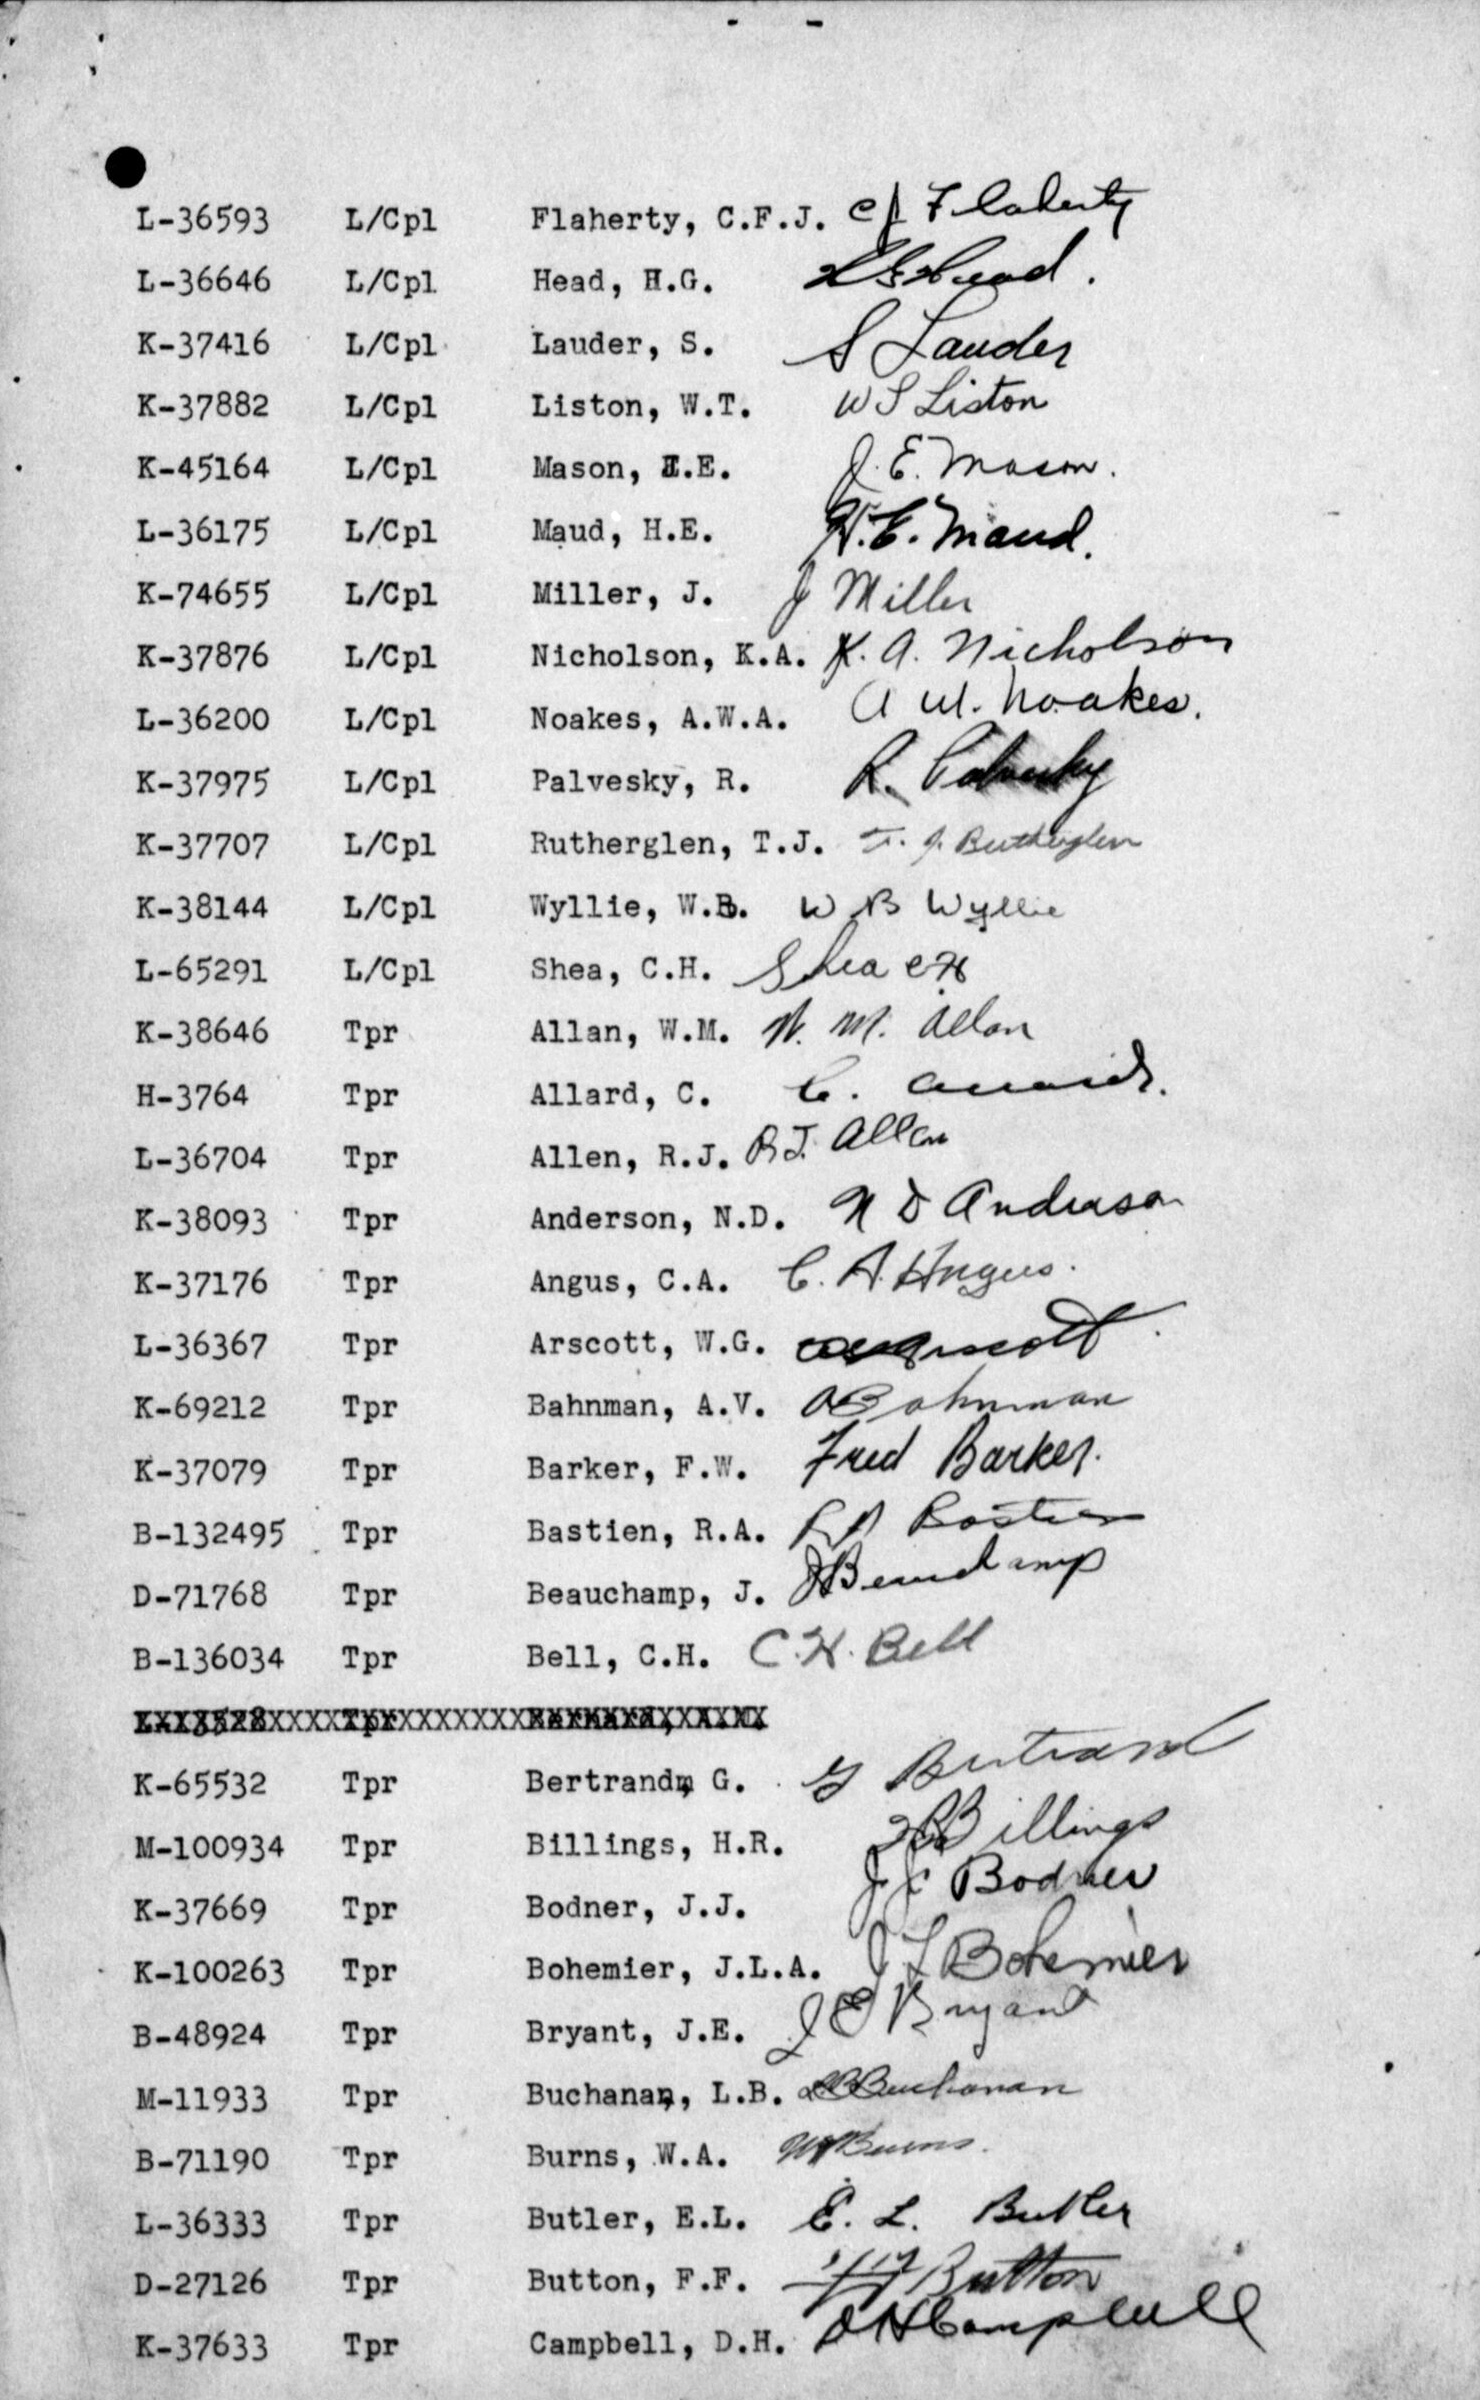 L-36593 L/Cpl Flaherty, C.F.J. C J Flaherty
L-36646 L/Cpl Head, H.G. H G Head.
K-37416 L/Cpl Lauder, S. S Lauder
K-37882 L/Cpl Liston, W.T. W T Liston
K-45164 L/Cpl Mason, J.E. J. E. Mason.
L-36175 L/Cpl Maud, H.E. H. E. Maud.
K-74655 L/Cpl Miller, J. J Miller
K-37876 L/Cpl Nicholson, K.A. K. A. Nicholson
L-36200 L/Cpl Noakes, A.W.A. A W. Noakes.
K-37975 L/Cpl Palvesky, R. R. Palvesky
K-37707 L/Cpl Rutherglen, T.J. T. J. Rutherglen
K-38144 L/Cpl Wyllie, W.B. W B Wyllie
L-65291 L/Cpl Shea, C.H. Shea C.H
K-38646 Tpr Allan, W.M. W. M. Allan
H-3764 Tpr Allard, C. C. Allard.
L-36704 Tpr Allen, R.J. R J. Allen
K-38093 Tpr Anderson, N.D. N D Anderson
K-37176 Tpr Angus, C.A. C. A. Angus.
L-36367 Tpr Arscott, W.G. Arscott
K-69212 Tpr Bahnman, A.V. A Bahnman
K-37079 Tpr Barker, F.W. Fred Barker.
B-132495 Tpr Bastien, R.A. R A Bastien
D-71768 Tpr Beauchamp, J. J Beauchamp
B-136034 Tpr Bell, C.H. C. H. Bell
Tpr
K-65532 Tpr Bertrand, G. G Bertrand
M-100934 Tpr Billings, H.R. H R Billings
K-37669 Tpr Bodner, J.J. J J Bodner
K-100263 Tpr Bohemier, J.L.A. J L Bohemier
B-48924 Tpr Bryant, J.E. J E Bryant
M-11933 Tpr Buchanan, L.B. L B Buchanan
B-71190 Tpr Burns, W.A. W A Burns.
L-36333 Tpr Butler, E.L. E. L. Butler
D-27126 Tpr Button, F.F. F F Button
K-37633 Tpr Campbell, D.H. D H Campbell